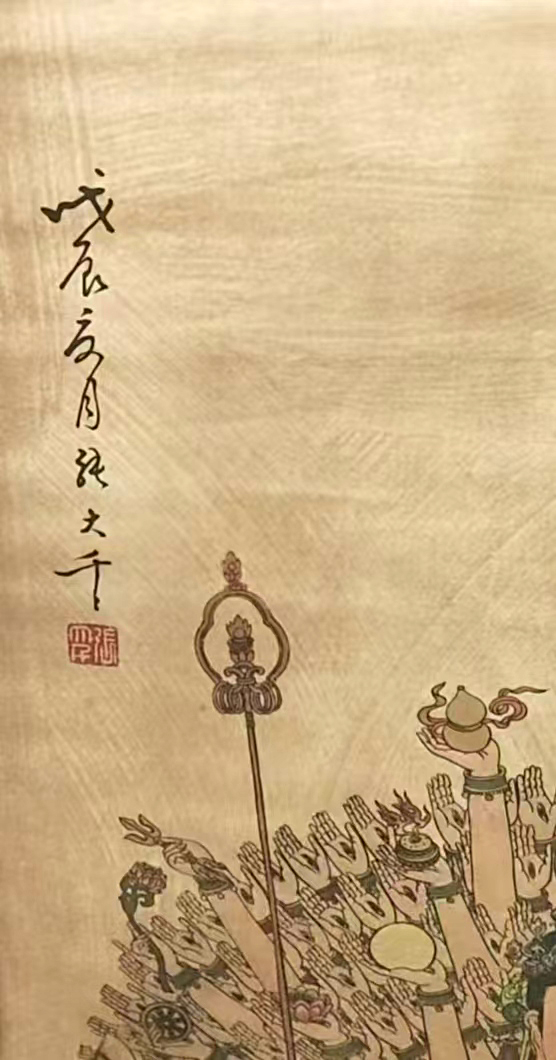 戊辰夏月張大千
張